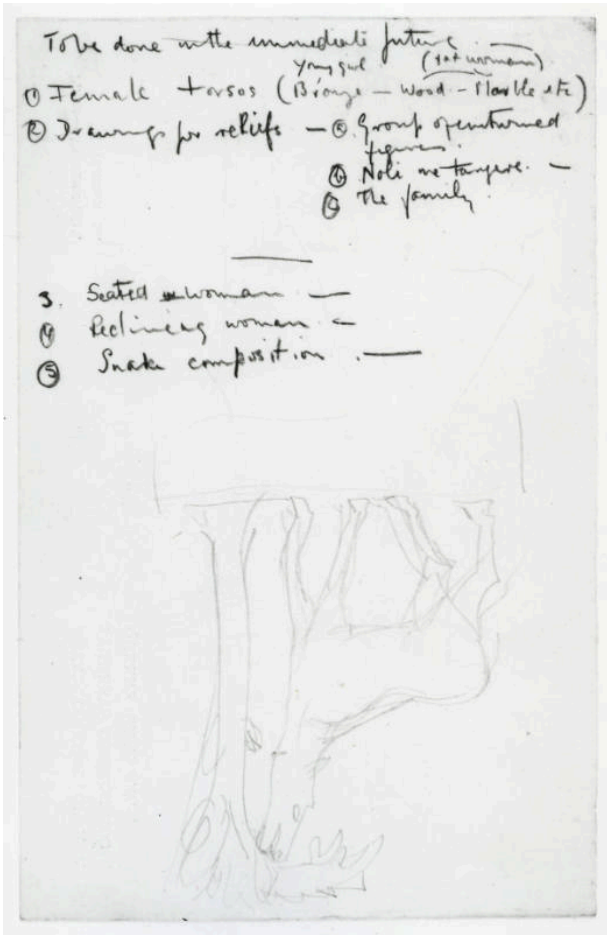 To be done in the immediate future
young girl (fat woman)
① Female torsos (Bronze — Wood — Marble etc)
② Drawings for reliefs — ⓐ Group of enturned
figures.
ⓑ Noli me tangere. —
ⓒ The family.
3. Seated woman —
④ Reclining woman —
⑤ Snake composition . —